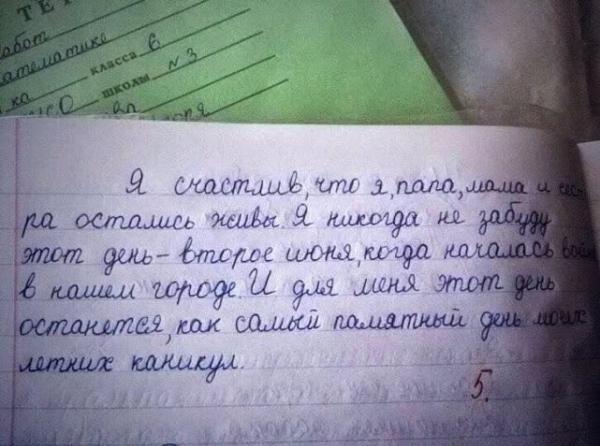 ТЕТ
работ
математике
ка класса 6
школы №3
Я счастлив, что я, папа, мама и сест-
ра остались живы. Я никогда не забуду
этот день – второе июня, когда началась война
в нашем городе. И для меня этот день
останется, как самый памятный день моих
летних каникул.
5.